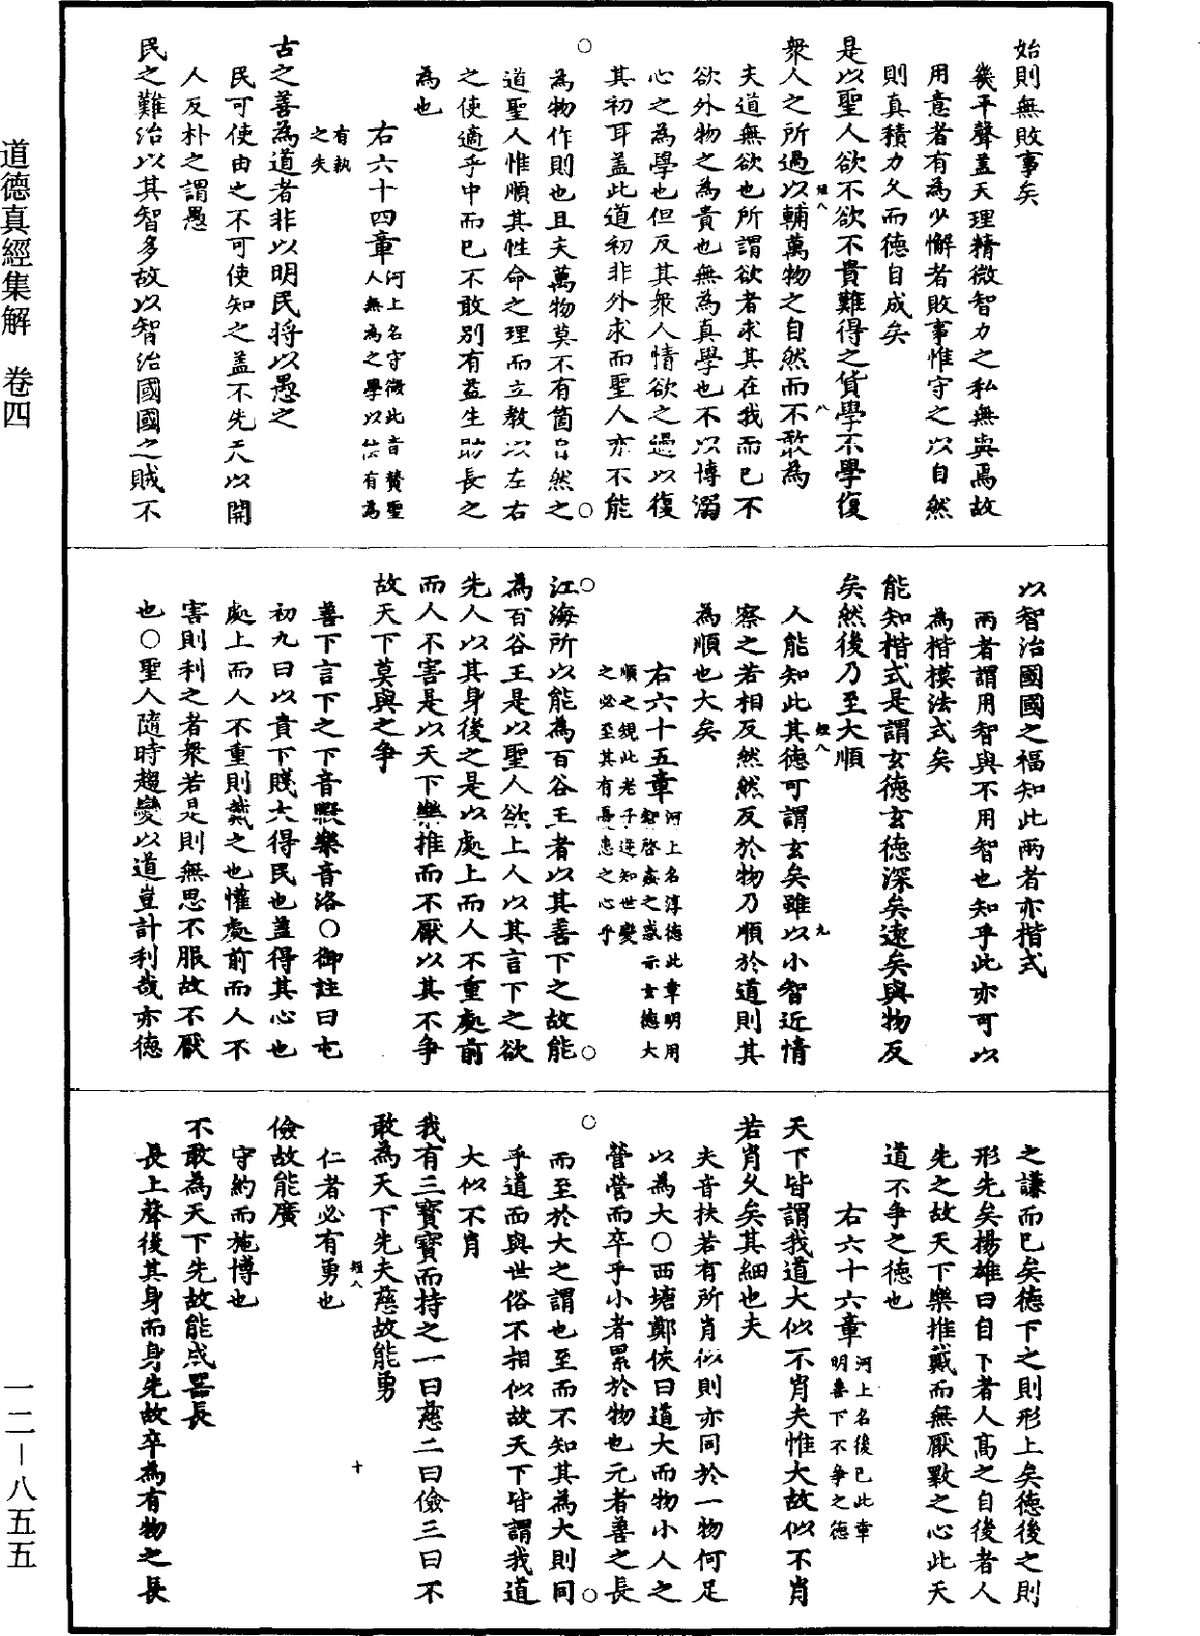 道德真經集解　卷四
一二—八五五
始則無敗事矣
幾平聲蓋天理精微智力之私無與焉故
用意者有為少懈者敗事惟守之以自然
則真積力久而德自成矣
是以聖人欲不欲不貴難得之貨學不學復
衆人之所過以輔萬物之自然而不敢為
夫道無欲也所謂欲者求其在我而已不
欲外物之為貴也無為真學也不以博溺
心之為學也但反其衆人情欲之過以復
其初耳蓋此道初非外求而聖人亦不能
為物作則也且夫萬物莫不有箇自然之
道聖人惟順其性命之理而立教以左右
之使適乎中而已不敢別有益生助長之
為也
右六十四章河上名守微此音贊聖
人無為之學以有為
有執
之失
古之善為道者非以明民將以愚之
民可使由之不可使知之蓋不先天以開
人反朴之謂愚
民之難治以其智多故以智治國國之賊不
以智治國國之福知此兩者亦楷式
兩者謂用智與不用智也知乎此亦可以
為楷模法式矣
能知楷式是謂玄德玄德深矣遠矣與物反
矣然後乃至大順
人能知此其德可謂玄矣雖以小智近情
察之若相反然然反於物乃順於道則其
為順也大矣
右六十五章河上名淳德此章明用
智啓姦之惑示玄德大
順之鏡此老子逆知世變
之必至其有憂患之心乎
江海所以能為百谷王者以其善下之故能
為百谷王是以聖人欲上人以其言下之欲
先人以其身後之是以處上而人不重處前
而人不害是以天下樂推而不厭以其不爭
故天下莫與之爭
善下言下之下音暇樂音洛○御註曰屯
初九曰以貴下賤大得民也蓋得其心也
處上而人不重則戴之也懽處前而人不
害則利之者衆若是則無思不服故不厭
也○聖人隨時趨變以道豈計利哉亦德
之謙而已矣德下之則形上矣德後之則
形先矣揚雄曰自下者人高之自後者人
先之故天下樂推戴而無厭斁之心此天
道不爭之德也
右六十六章河上名後已此章
明善下不爭之德
天下皆謂我道大似不肖夫惟大故似不肖
若肖久矣其細也夫
夫音扶若有所肖似則亦同於一物何足
以為大○西塘鄭俠曰道大而物小人之
營營而卒乎小者累於物也元者善之長
而至於大之謂也至而不知其為大則同
乎道而與世俗不相似故天下皆謂我道
大似不肖
我有三寶寶而持之一曰慈二曰儉三曰不
敢為天下先夫慈故能勇
仁者必有勇也
儉故能廣
守約而施博也
不敢為天下先故能成器長
長上聲後其身而身先故卒為有物之長